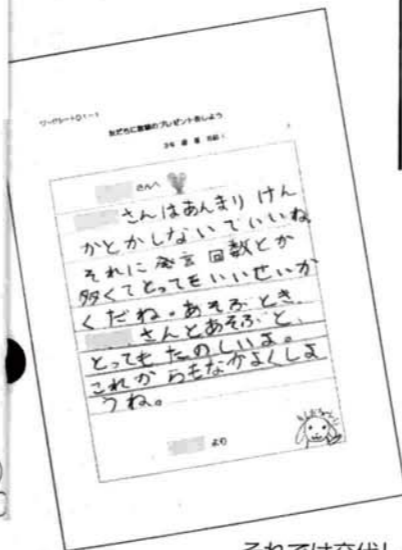 ワークシート01-1
友だちに言葉のプレゼントをしよう
3年 組 番 名前(
さんへ
さんはあんまり けん
かとかしないでいいね
それに 発言 回数とか
多くてとってもいいせいか
くだね。あそぶとき、
さんとあそぶと、
とっても たのしいよ。
これからもなかよくしよ
うね。
より
それでは交代し